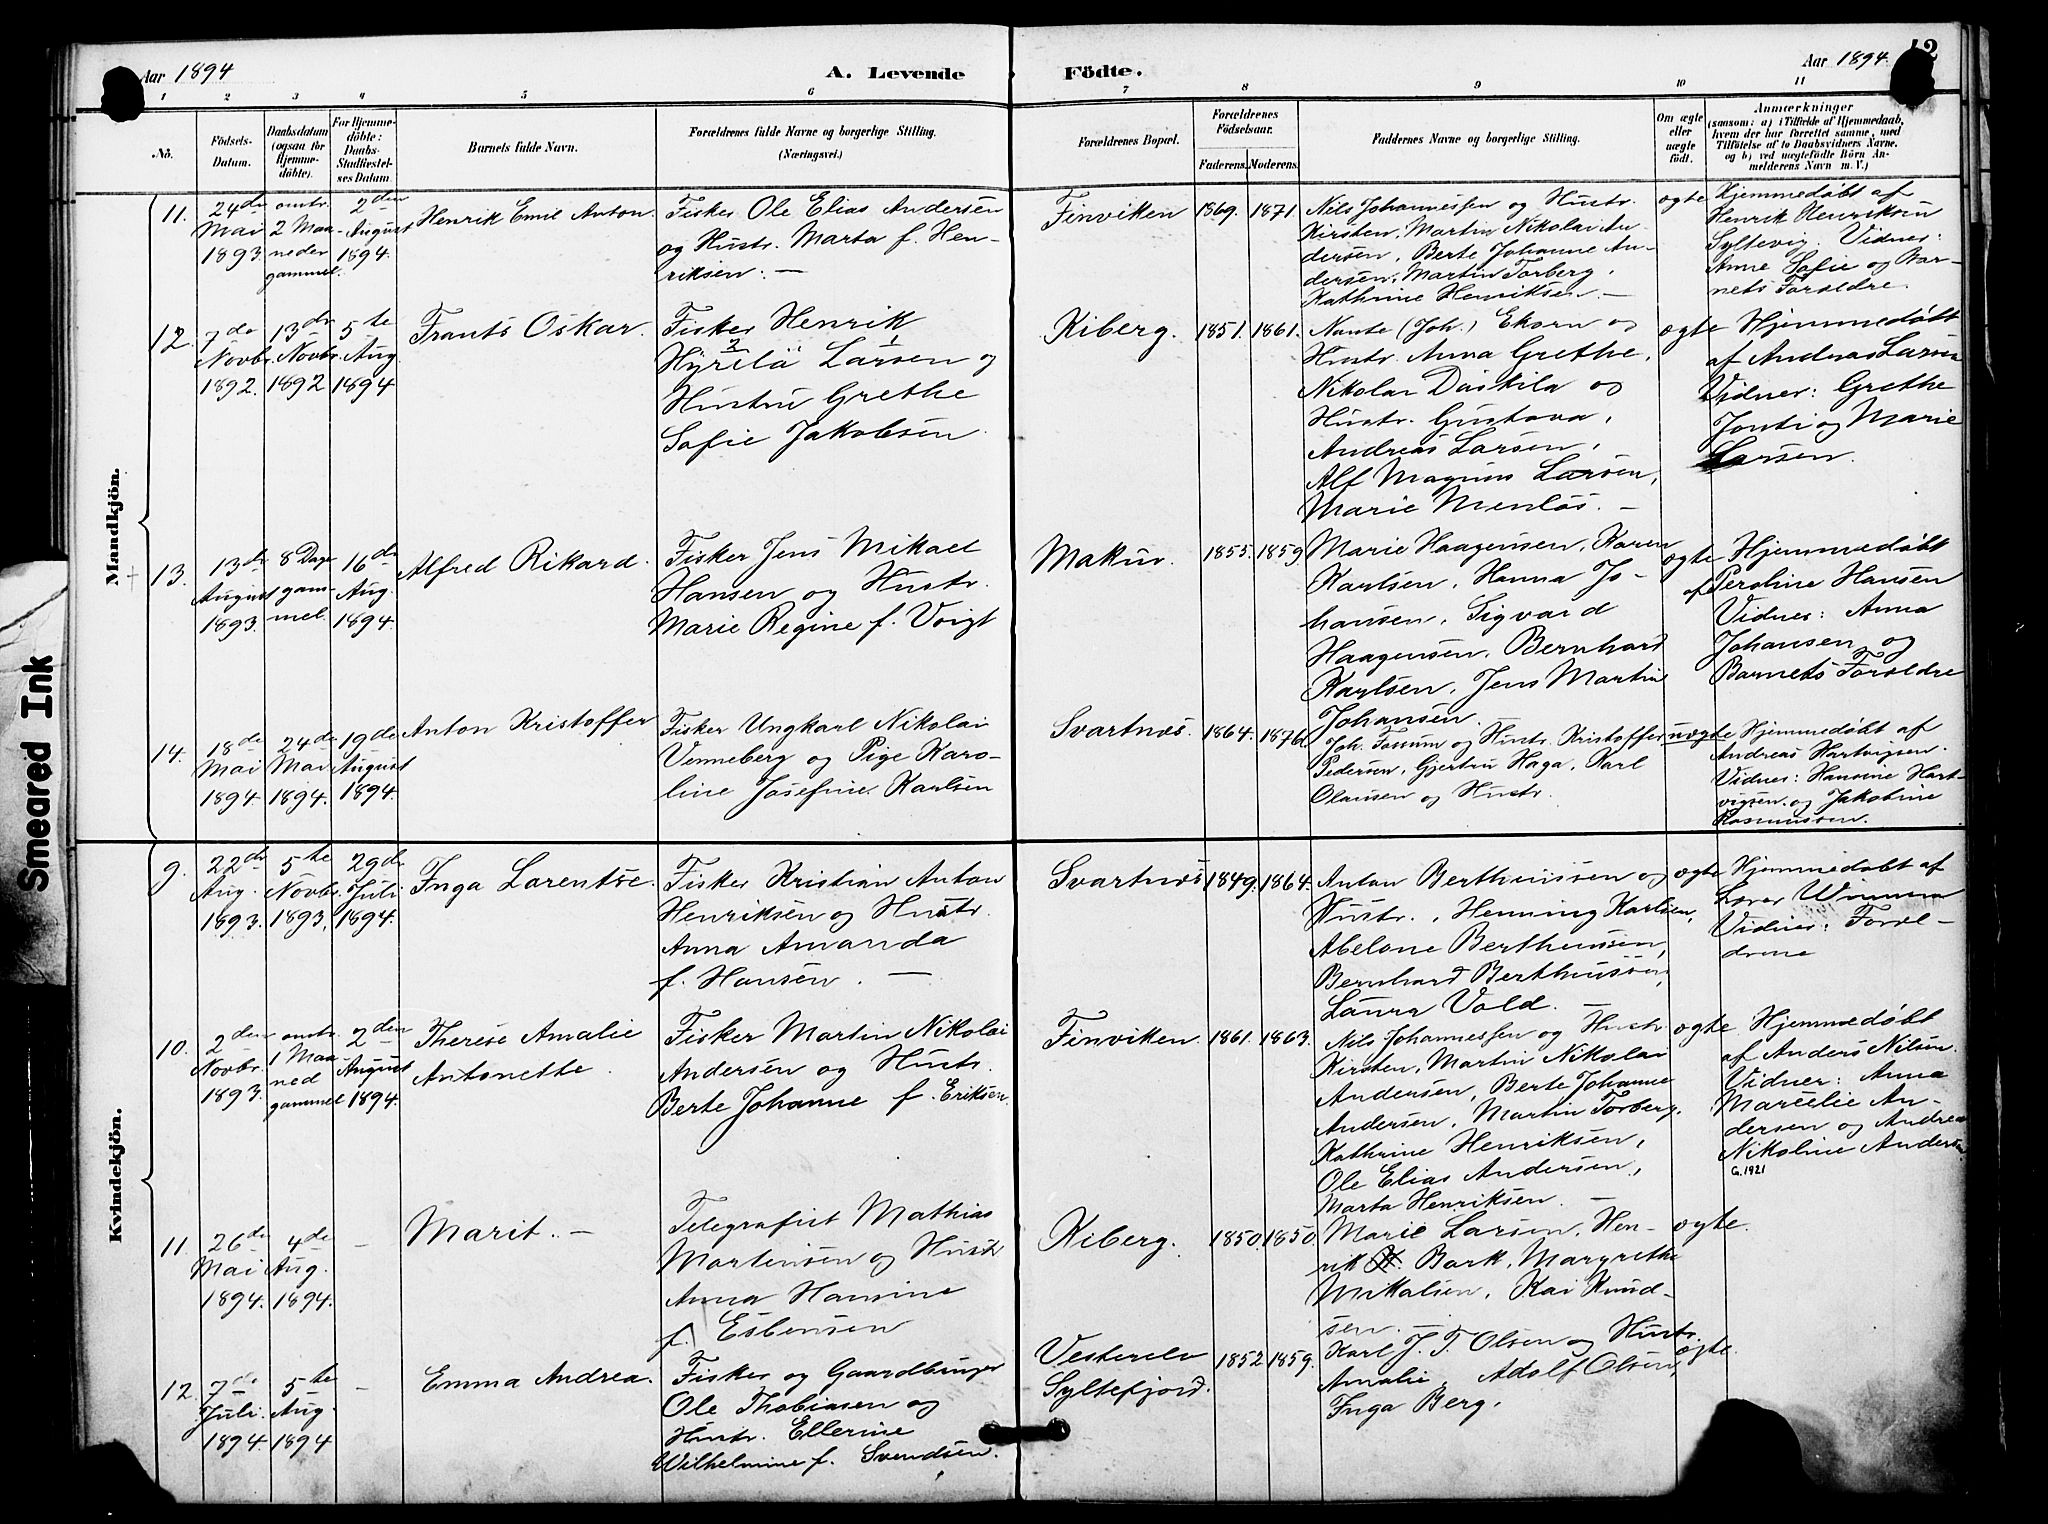 Aar 1894
A. Levende
Födte.
Aar 1894.
12
1 2 3 4 5 6 7 8 9 10 11
No.
Födsels-
Datum.
Daabsdatum
(ogsaa for
Hjemme-
döbte).
For Hjemme-
döbte:
Daabs-
Stadfæstel-
ses Datum
Barnets fulde Navn.
Forældrenes fulde Navne og borgerlige Stilling.
(Næringsvei.)
Forældrenes Bopæl.
Forældrenes
Födselsaar.
Faderens. Moderens.
Faddernes Navne og borgerlige Stilling.
Om ægte
eller
uægte
födt.
Anmærkninger
(saasom: a) i Tilfælde af Hjemmedaab,
hvem der har forrettet samme, med
Tilföielse af to Daabsvidners Navne.
og b) ved uægtefödte Börn An-
melderens Navn m. V.)
Mandkjön.
11.
24de
Mai
1893.
omtr.
2 Maa-
neder
gammel.
2den
August
1894.
Henrik Emil Anton.
Fisker Ole Elias Andersen
og Hustr. Marta f. Hen-
riksen. —
Finviken
1869. 1871.
Nils Johannessen og Hustr.
Kirsten, Martin Nikolai An-
dersen, Berte Johanne An-
dersen, Martin Torberg,
Kathrine Henriksen. —
ægte
Hjemmedøbt af
Henrik Henriksen
Syltevig. Vidner:
Anne Sofie og Bar-
nets Forældre.
12.
7de
Novbr.
1892.
13de
Novbr.
1892
5te
Aug.
1894
Frants Oskar.
Fisker Henrik
Hyrelä Larsen og
Hustru Grethe
Sofie Jakobsen.
Kiberg.
1851. 1861.
Nante (Joh.) Ekorn og
Hustr. Anna Grethe,
Nikolai Daskila og
Hustr. Gustava,
Andreas Larsen,
Alf Magnus Larsen,
Marie Menløs. —
ægte
Hjemmedøbt
af Andreas Larsen
Vidner: Grethe
Jonti og Marie
Larsen.
13.
13de
August
1893.
8 Dage
gam-
mel.
16de
Aug.
1894.
Alfred Rikard.
Fisker Jens Mikael
Hansen og Hustr.
Marie Regine f. Voigt
Makur.
1855. 1859
Marie Haagensen, Karen
Karlsen, Hanna Jo-
hansen, Sigvard
Haagensen, Bernhard
Karlsen, Jens Martin
Johansen.
ægte
Hjemmedøbt
af Peroline Hansen
Vidner: Anna
Johansen og
Barnets Forældre
14.
18de
Mai
1894
24de
Mai
1894.
19de
August
1894.
Anton Kristoffer
Fisker Ungkarl Nikolai
Venneberg og Pige Karo-
line Josefine Karlsen
Svartnes.
1864. 1876.
Joh. Fossum og Hustr. Kristoffer
Pedersen, Gjertru Haga, Karl
Olausen og Hustr.
uægte
Hjemmedøbt af
Andreas Hartvigsen.
Vidner: Hansine Hart-
vigsen og Jakobine
Rasmussen.
Kvindekjön.
9.
22de
Aug.
1893.
5te
Novbr.
1893,
29de
Juli
1894.
Inga Lorentse.
Fisker Kristian Anton
Henriksen og Hustr.
Anna Amanda
f. Hansen. —
Svartnes
1849. 1864.
Anton Bertheussen og
Hustr., Henning Karlsen,
Abelone Bertheussen,
Bernhard Bertheussen,
Laura Vold. —
ægte
Hjemmedøbt af
Lærer
Vidner: Foræl-
drene
10.
2den
Novbr.
1893.
omtr.
1 Maa-
ned
gammel
2den
August
1894.
Therese Amalie
Antonette.
Fisker Martin Nikolai
Andersen og Hustr.
Berte Johanne f. Eriksen.
Finviken.
1861. 1863.
Nils Johannessen og Hustr
Kirsten, Martin Nikolai
Andersen, Berte Johanne
Andersen, Martin Torberg.
Kathrine Henriksen,
Ole Elias Andersen,
Marta Henriksen. —
ægte
Hjemmedøbt
af Anders Nilsen.
Vidner: Anna
Marcelie An-
dersen og Andrea
Nikoline Andersen
G.1921
11.
26de
Mai
1894.
4de
Aug.
1894.
—
Marit. —
Telegrafist Mathias
Mortensen og Hustr
Anna Hansine
f. Esbensen
Kiberg.
1850. 1850.
Marie Larsen, Hen-
rik Bark, Margrethe
Mikalsen, Kai Knud-
sen. —
ægte.
12.
7de
Juli.
1894.
5te
Aug.
1894
—
Emma Andrea.
Fisker og Gaardbruger
Ole Thobiasen og
Hustr. Ellerine
Wilhelmine f. Svendsen.
Vesterelv
Syltefjord.
1852 1859.
Karl J. T. Olsen og Hustr.
Amalie, Adolf Olsen,
Inga Berg.
ægte.
Smeared Ink